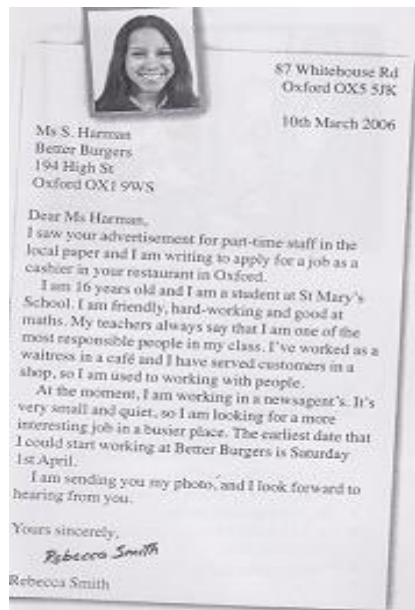 87 Whitehouse Rd
Oxford OX5 5JK
10th March 2006
Ms S. Harman
Better Burgers
194 High St
Oxford OX1 9WS
Dear Ms Harman,
I saw your advertisement for part-time staff in the
local paper and I am writing to apply for a job as a
cashier in your restaurant in Oxford.
I am 16 years old and I am a student at St Mary's
School. I am friendly, hard-working and good at
maths. My teachers always say that I am one of the
most responsible people in my class. I've worked as a
waitress in a café and I have served customers in a
shop, so I am used to working with people.
At the moment, I am working in a newsagent's. It's
very small and quiet, so I am looking for a more
interesting job in a busier place. The earliest date that
I could start working at Better Burgers is Saturday
1st April.
I am sending you my photo, and I look forward to
hearing from you.
Yours sincerely,
Rebecca Smith
Rebecca Smith